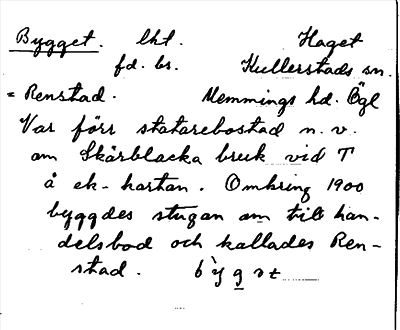 Bygget. lkt. Haget
fd. bs. Kullerstads sn.
= Renstad. Memmings hd. Ögl
Var förr statarebostad n. v.
om Skärblacka bruk vid T
å ek-kartan. Omkring 1900
byggdes stugan om till han-
delsbod och kallades Ren-
stad.